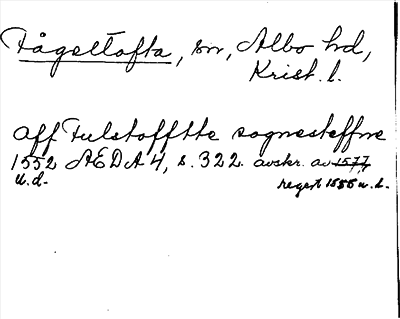 Fågeltofta, sn, Albo hd,
Krist. l.
aff Fulstofftte sognesteffne
1552 ÆDA 4, s. 322. avskr. av 1577,
u.d. regest 1555 u.d.